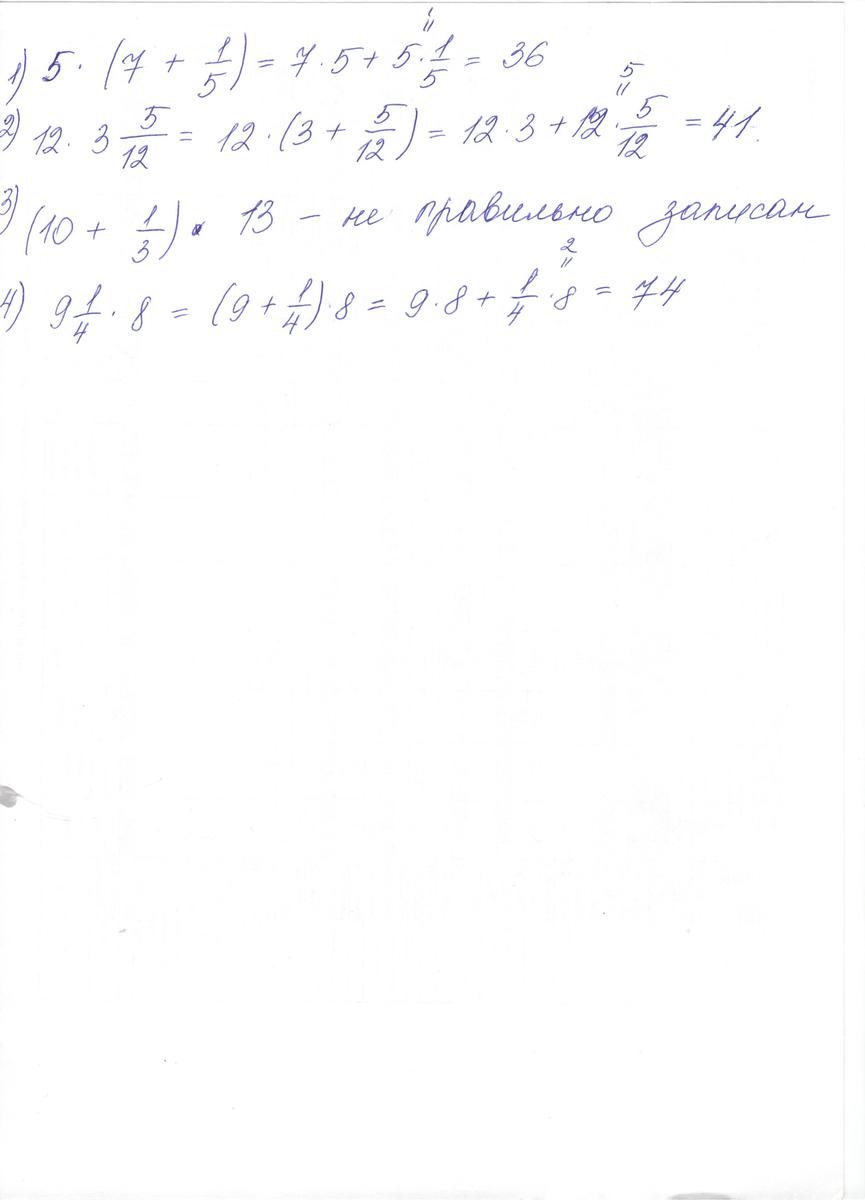 1) 5 · (7 + 1/5) = 7 · 5 + 5 · 1/5 (= 1) = 36
2) 12 · 3 5/12 = 12 · (3 + 5/12) = 12 · 3 + 12 · 5/12 (= 5) = 41.
3) (10 + 1/3) · 13 – не правильно записан
4) 9 1/4 · 8 = (9 + 1/4) · 8 = 9 · 8 + 1/4 · 8 (= 2) = 74